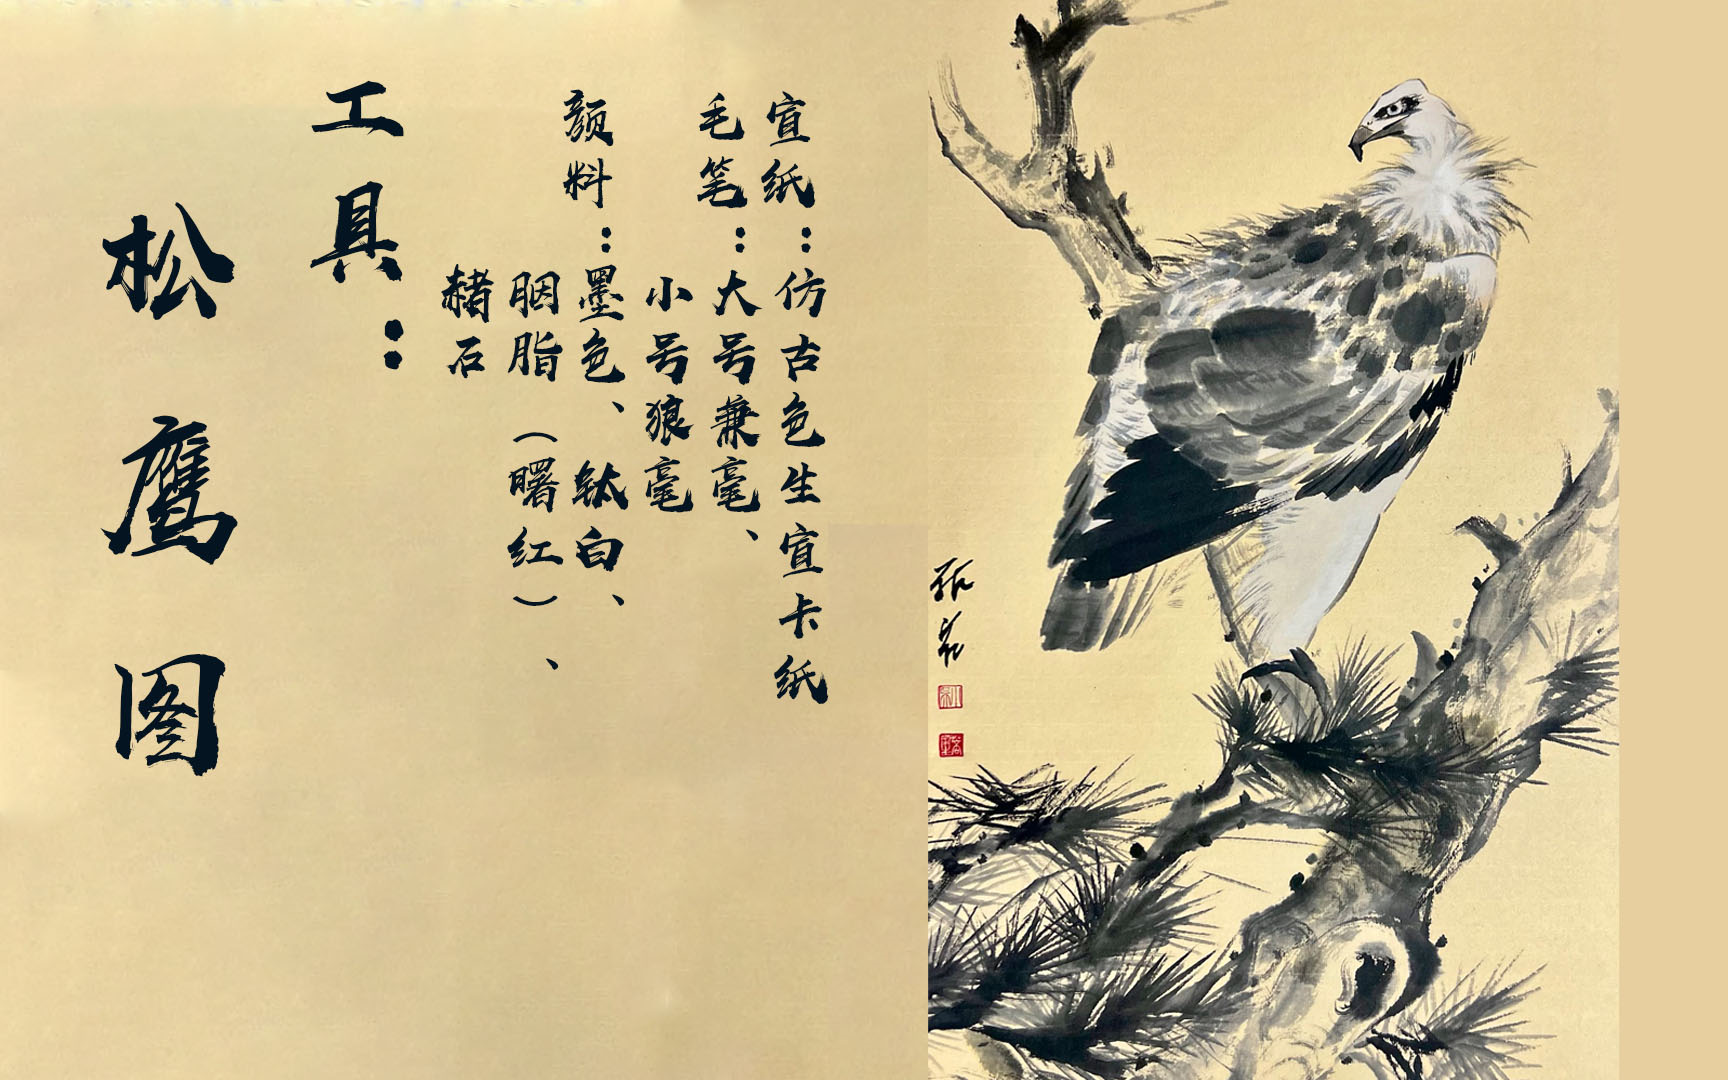 松鹰图
工具：
宣纸：仿古色生宣卡纸
毛笔：大号兼毫、
小号狼毫
颜料：墨色、钛白、
胭脂（曙红）、
赭石